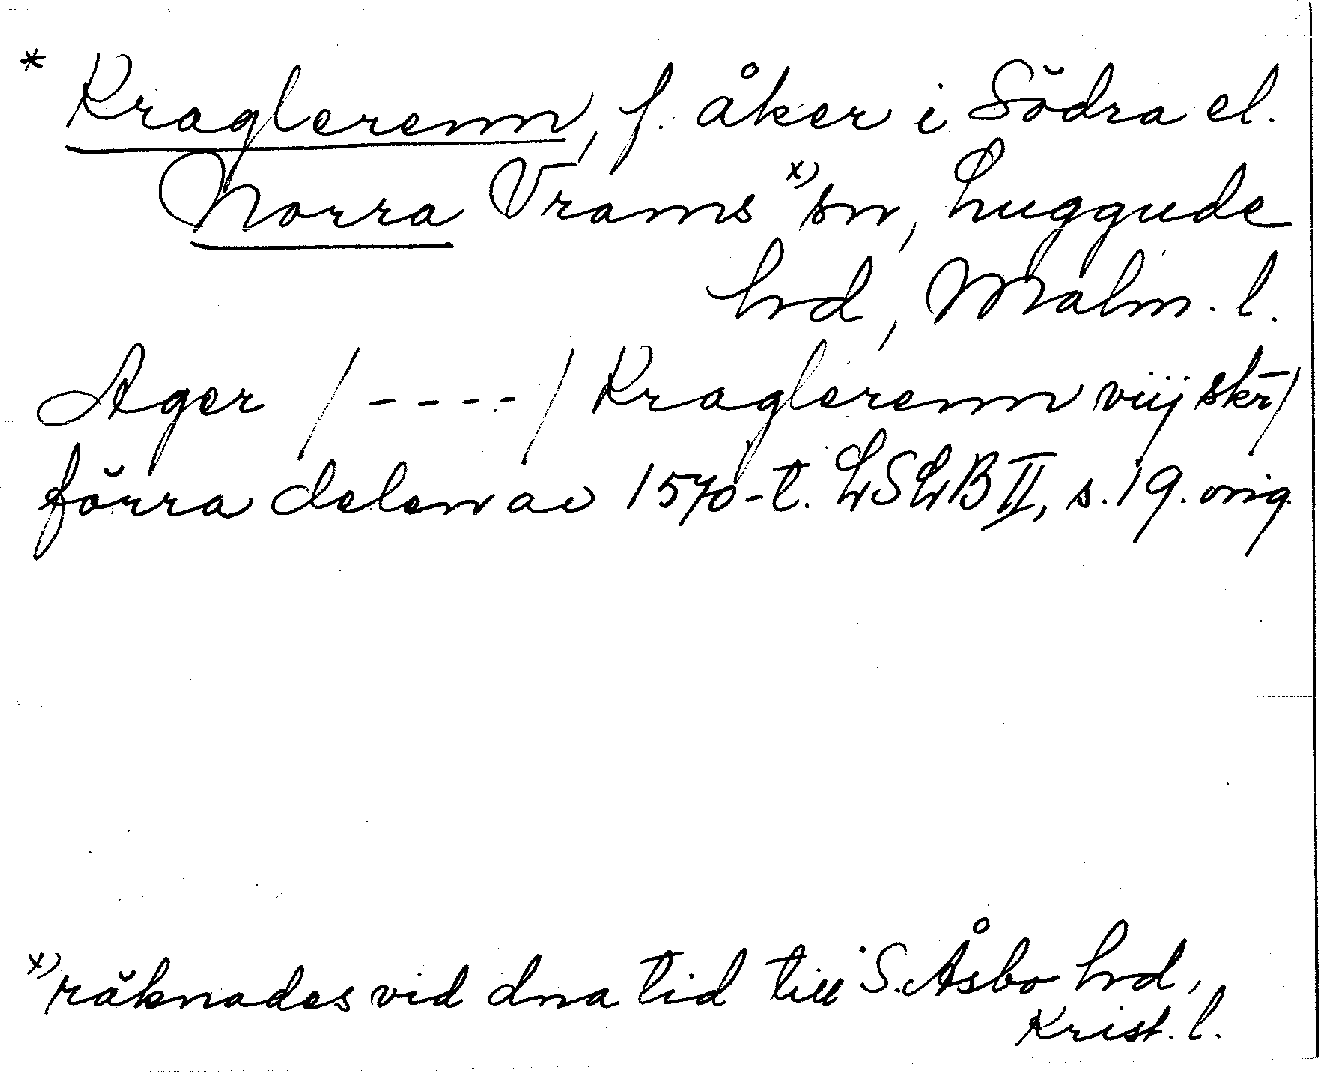 * Kraglerenn, f. åker i Södra el.
Norra Vrams x) sn, Luggude
hd, Malm. l.
Ager /----/ Kraglerenn viij skr /
förra delen av 1570-t. LSLB II, s. 19. orig.
x) räknades vid dna tid till S. Åsbo hd,
Krist. l.